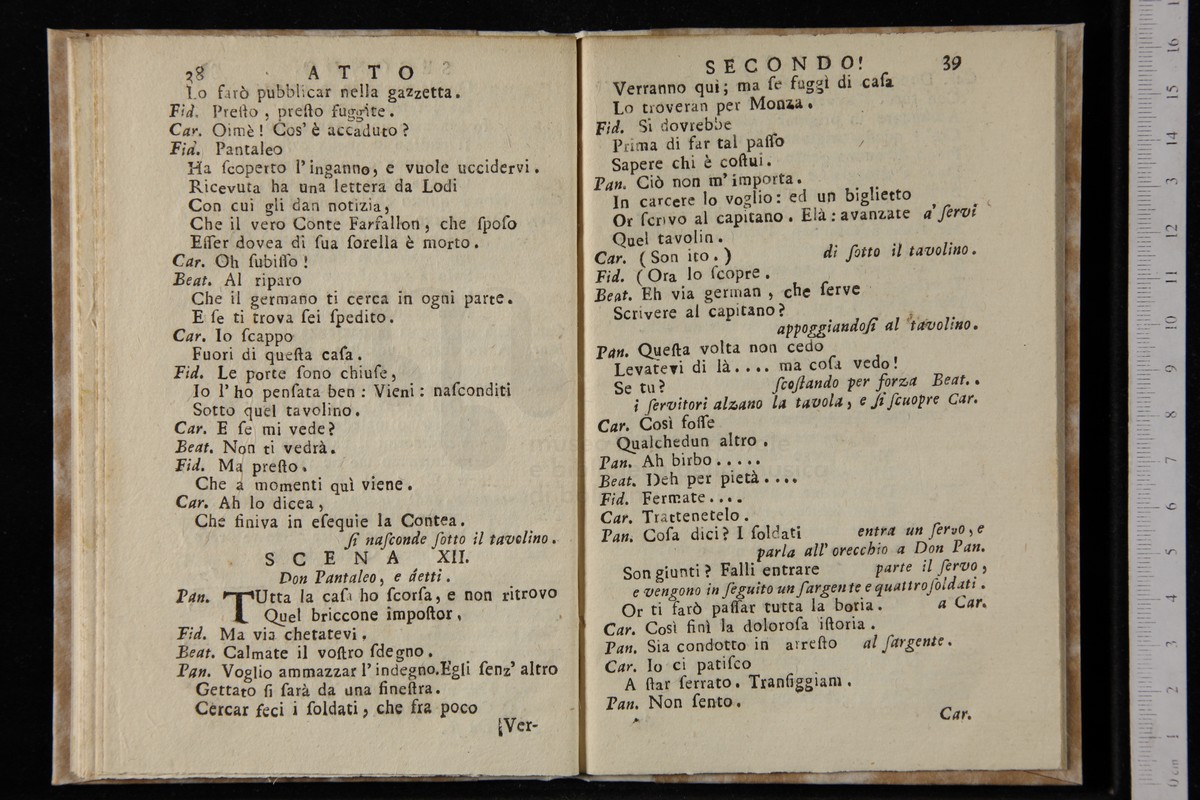 38 ATTO
Lo farò pubblicar nella gazzetta.
Fid. Preſto, preſto fuggite.
Car. Oimè! Cos' è accaduto?
Fid. Pantaleo
Ha ſcoperto l'inganno, e vuole uccidervi.
Ricevuta ha una lettera da Lodi
Con cui gli dan notizia,
Che il vero Conte Farfallon, che ſpoſo
Eſſer dovea di ſua ſorella è morto.
Car. Oh ſubiſſo!
Beat. Al riparo
Che il germano ti cerca in ogni parte.
E ſe ti trova ſei ſpedito.
Car. Io ſcappo
Fuori di queſta caſa.
Fid. Le porte ſono chiuſe,
Io l'ho penſata ben: Vieni: naſconditi
Sotto quel tavolino.
Car. E ſe mi vede?
Beat. Non ti vedrà.
Fid. Ma preſto.
Che a momenti quì viene.
Car. Ah lo dicea,
Che finiva in eſequie la Contea.
ſi naſconde ſotto il tavolino.
SCENA XII.
Don Pantaleo, e detti.
Pan. TUtta la caſa ho ſcorſa, e non ritrovo
Quel briccone impoſtor,
Fid. Ma via chetatevi.
Beat. Calmate il voſtro ſdegno.
Pan. Voglio ammazzar l'indegno. Egli ſenz' altro
Gettato ſi ſarà da una fineſtra.
Cercar feci i ſoldati, che fra poco
Ver-
SECONDO! 39
Verranno qui; ma ſe fuggì di caſa
Lo troveran per Monza.
Fid. Si dovrebbe
Prima di far tal paſſo
Sapere chi è coſtui.
Pan. Ciò non m'importa.
In carcere lo voglio: ed un biglietto
Or ſcrivo al capitano. Elà: avanzate a' ſervi
Quel tavolin.
Car. (Son ito.) di ſotto il tavolino.
Fid. (Ora lo ſcopre.
Beat. Eh via german, che ſerve
Scrivere al capitano?
appoggiandoſi al tavolino.
Pan. Queſta volta non cedo
Levatevi di là.... ma coſa vedo!
Se tu? ſcoſtando per forza Beat..
i ſervitori alzano la tavola, e ſi ſcuopre Car.
Car. Così foſſe
Qualchedun altro.
Pan. Ah birbo.....
Beat. Deh per pietà....
Fid. Fermate....
Car. Trattenetelo.
Pan. Coſa dici? I ſoldati entra un ſervo, e
parla all' orecchio a Don Pan.
Son giunti? Falli entrare parte il ſervo,
e vengono in ſeguito un ſargente e quattro ſoldati.
Or ti farò paſſar tutta la boria. a Car.
Car. Così finì la doloroſa iſtoria.
Pan. Sia condotto in arreſto al ſargente.
Car. Io ci patiſco
A ſtar ferrato. Tranſiggiam.
Pan. Non ſento.
Car.